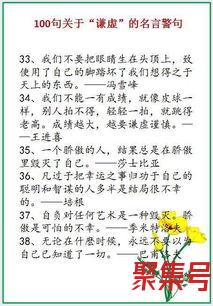 100句关于“谦虚”的名言警句
33、我们不要把眼睛生在头顶上，致
使用了自己的脚踏坏了我们想得之于
天上的东西。——冯雪峰
34、我们不能一有成绩，就像皮球一
样，别人拍不得，轻轻一拍，就跳得
老高。成绩越大，越要谦虚谨慎。—
—王进喜
35、一个骄傲的人，结果总是在骄傲
里毁灭了自己。——莎士比亚
36、凡过于把幸运之事归功于自己的
聪明和智谋的人多半是结局很不幸
的。——培根
37、自负对任何艺术是一种毁灭。骄
傲是可怕的不幸。——季米特洛夫
38、无论在什麽时候，永远不要以为
自己已知道了一切。——巴甫洛夫
聚集号